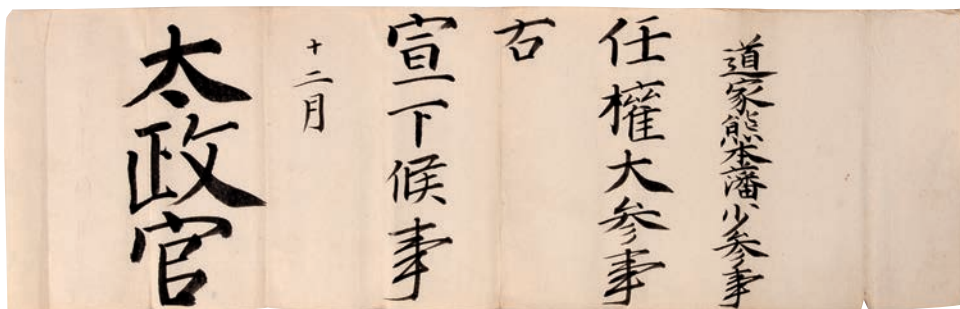 道家熊本藩少参事
任權大参事
右
宣下候事
十二月
太政官